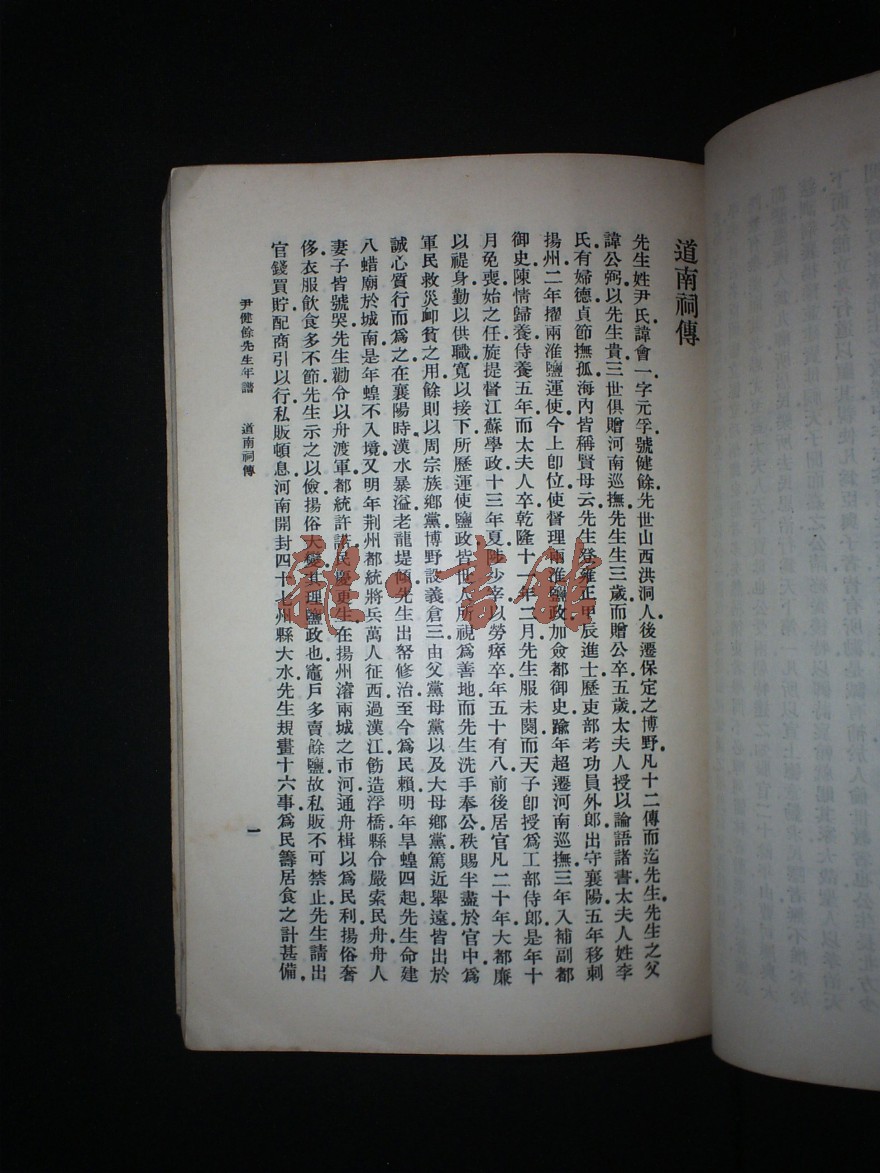 道南祠傳
先生姓尹氏諱會一字元孚號健餘先世山西洪洞人後遷保定之博野凡十二傳而迄先生先生之父
諱公弼以先生貴三世俱贈河南巡撫先生生三歲而贈公卒五歲太夫人授以論語諸書太夫人姓李
氏有婦德貞節撫孤海內皆稱賢母云先生登雍正甲辰進士歷吏部考功員外郎出守襄陽五年移刺
揚州二年擢兩淮鹽運使今上卽位使督理兩淮鹽政加僉都御史踰年超遷河南巡撫三年入補副都
御史陳情歸養侍養五年而太夫人卒乾隆十一年二月先生服未闋而天子卽授爲工部侍郎是年十
月免喪始之任旋提督江蘇學政十三年夏陟少宰以勞瘁卒年五十有八前後居官凡二十年大都廉
以禔身勤以供職寬以接下所歷運使鹽政皆世人所視爲善地而先生洗手奉公秩賜半盡於官中爲
軍民救災卹貧之用餘則以周宗族鄉黨博野設義倉三由父黨母黨以及大母鄉黨篤近舉遠皆出於
誠心質行而爲之在襄陽時漢水暴溢老龍堤傾先生出帑修治至今爲民賴明年旱蝗四起先生命建
八蜡廟於城南是年蝗不入境又明年荆州都統將兵萬人征西過漢江飭造浮橋縣令嚴索民舟舟人
妻子皆號哭先生勸令以舟渡軍都統許諾民慶更生在揚州濬兩城之市河通舟楫以爲民利揚俗奢
侈衣服飲食多不節先生示之以儉揚俗大變其理鹽政也竈戶多賣餘鹽故私販不可禁止先生請出
官錢買貯配商引以行私販頓息河南開封四十七州縣大水先生規畫十六事爲民籌居食之計甚備
尹健餘先生年譜 道南祠傳
一
龍小書館